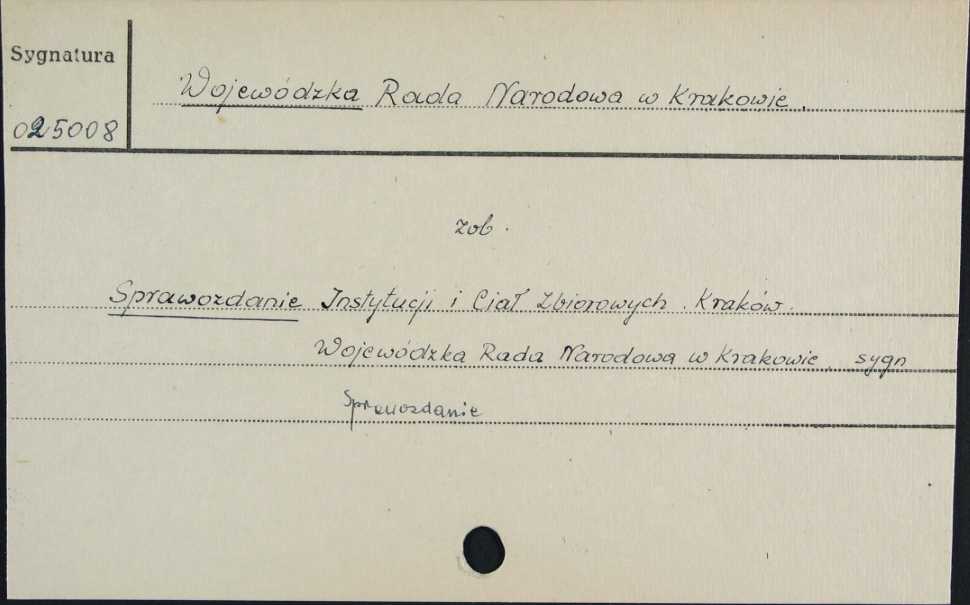 Sygnatura
Wojewódzka Rada Narodowa w Krakowie.
025008
zob.
Sprawozdanie Instytucji i Ciał Zbiorowych. Kraków.
Wojewódzka Rada Narodowa w Krakowie, sygn
Sprawozdanie